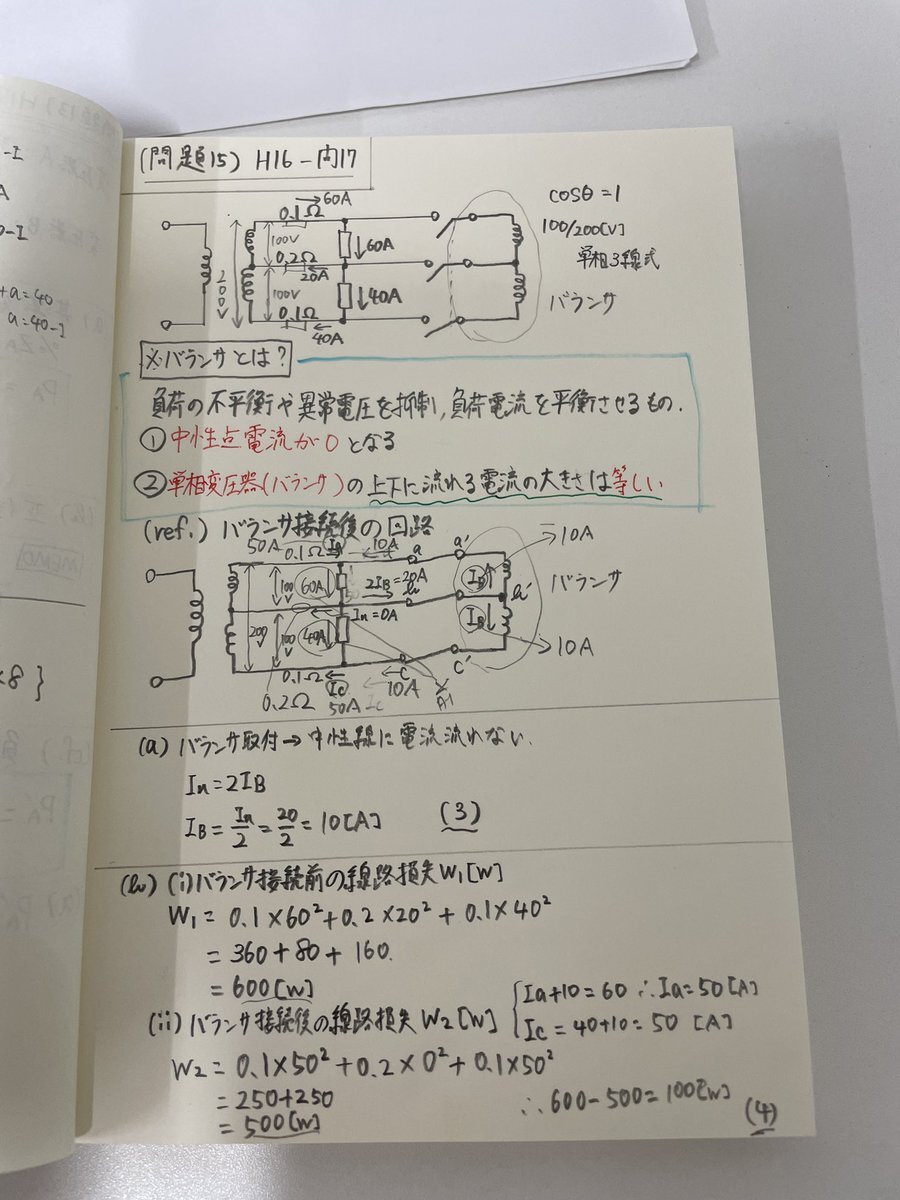 (問題15) H16-問17
cosθ=1
100/200[V]
単相3線式
バランサ
→60A
0.1Ω
100V
↓60A
200V
0.2Ω
20A
100V
↓40A
0.1Ω
40A
※バランサとは?
負荷の不平衡や異常電圧を抑制,負荷電流を平衡させるもの.
①中性点電流が0となる
②単相変圧器(バランサ)の上下に流れる電流の大きさは等しい
(ref.) バランサ接続後の回路
50A 0.1Ω Ia 10A a a' →10A
100V 60A↓ 2IB=20A b IB↑ バランサ
200V In=0A b'
100V 40A↓ IB↓ →10A
0.1Ω Ic c c'
0.2Ω 50A Ic 10A
(a) バランサ取付→中性線に電流流れない.
In=2IB
IB=In/2=20/2=10[A] (3)
(b) (i)バランサ接続前の線路損失W1[W]
W1=0.1×60²+0.2×20²+0.1×40²
=360+80+160.
=600[W]
(ii)バランサ接続後の線路損失W2[W]
Ia+10=60 ∴Ia=50[A]
Ic=40+10=50 [A]
W2=0.1×50²+0.2×0²+0.1×50²
=250+250
=500[W]
∴600-500=100[W]
(4)
-I
A
0-I
+a=40
a=40-I
×8}